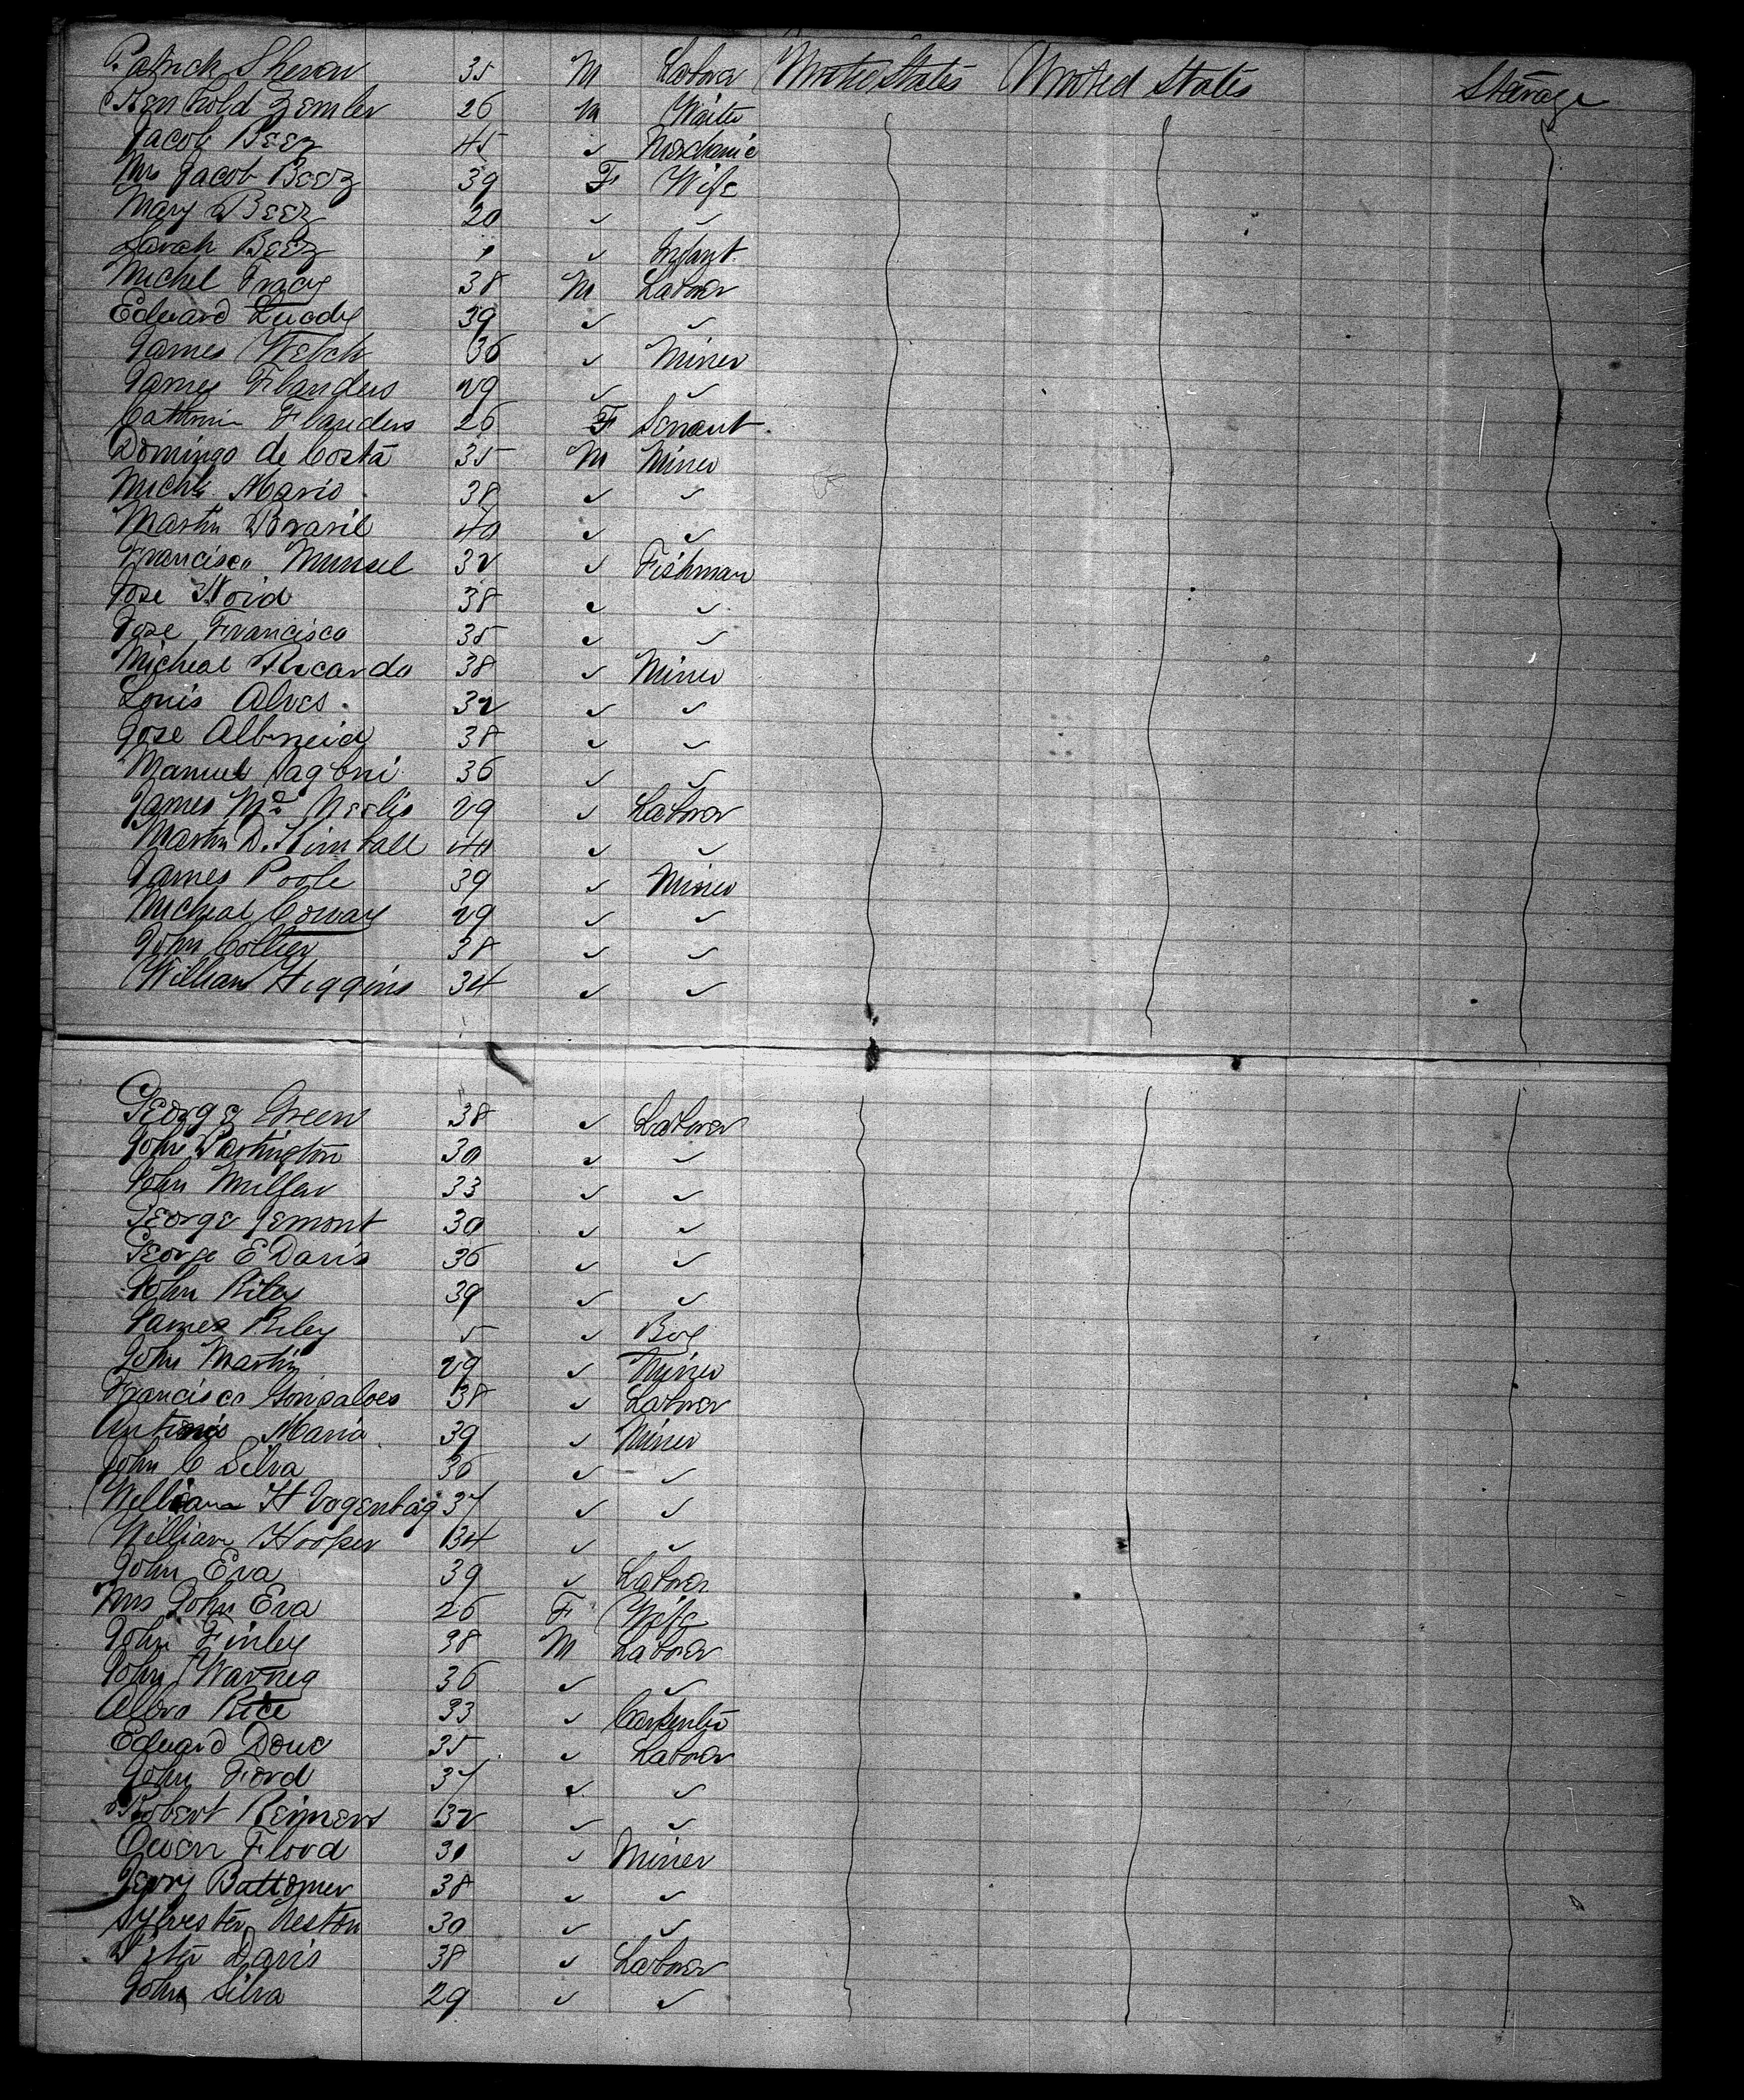 Patrick Sheran 35 M Labover United States United States Stearage
Renhold Zemler 26 M Waiter
Jacob Beez 45 ✓ Merchanic
Mrs Jacob Beez 39 F Wife
Mary Beez 20 ✓ ✓
Sarah Beez ✓ Infant
Michel Tracy 38 M Labover
Edward Luody 39 ✓ ✓
James Welch 36 ✓ Miner
James Flanders 29 ✓ ✓
Cathrin Flanders 26 F Servant
Domingo de Costa 35 M Miner
Michl Mario 38 ✓ ✓
Martin Brasil 40 ✓ ✓
Francisco Munsel 32 ✓ Fishman
Jose Noid 38 ✓ ✓
Jose Francisco 35 ✓ ✓
Micheal Ricardo 38 ✓ Miner
Louis Alves 32 ✓ ✓
Jose Albmeida 38 ✓ ✓
Manuel 36 ✓ ✓
James Mc Neelis 29 ✓ Labover
Martin D. Kimball 40 ✓ ✓
James Poole 39 ✓ Miner
Micheal Conway 29 ✓ ✓
John Collier 38 ✓ ✓
William Higgins 34 ✓ ✓
George Green 38 ✓ Labover
John Partington 30 ✓ ✓
John Millar 33 ✓ ✓
George Jemont 30 ✓ ✓
George E Davis 36 ✓ ✓
John Riley 39 ✓ ✓
James Riley 5 ✓ Boy
John Martin 29 ✓ Miner
Francisco Gonsalves 38 ✓ Labover
Antonio Maria 39 ✓ Miner
John C Silva 36 ✓ ✓
William H Vogentag 37 ✓ ✓
William Hooper 34 ✓ ✓
John Eva 39 ✓ Labover
Mrs John Eva 26 F Wife
John Finley 38 M Labover
John Warney 36 ✓ ✓
Albro Rice 33 ✓ Carpenter
Edward Douc 35 ✓ Labover
John Ford 37 ✓ ✓
Robert Reimers 32 ✓ ✓
Owen Flood 30 ✓ Miner
Jerry Battomer 38 ✓ ✓
Sylvester Neston 30 ✓ ✓
Peter Davis 38 ✓ Labover
John Silva 29 ✓ ✓